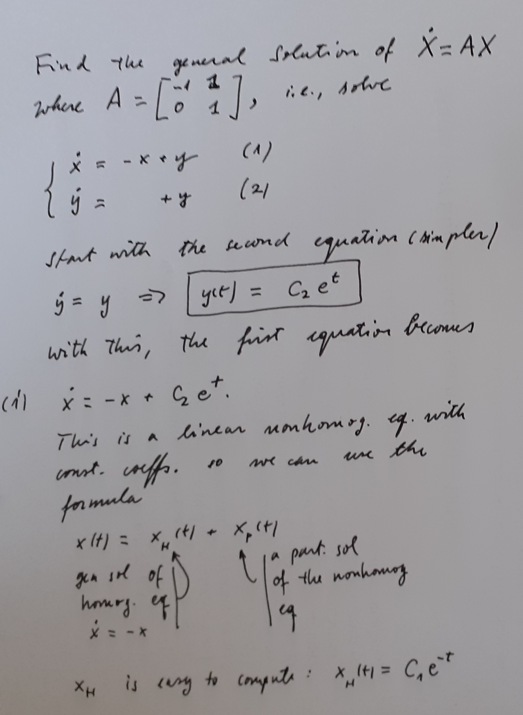 Find the general solution of Ẋ = AX
where A = [-1 1; 0 1], i.e., solve
{ ẋ = -x + y (1)
ẏ = +y (2)
Start with the second equation (simpler)
ẏ = y ⇒ y(t) = C₂ eᵗ
with this, the first equation becomes
(1) ẋ = -x + C₂ eᵗ.
This is a linear nonhomog. eq. with
const. coeffs. so we can use the
formula
x(t) = x_H(t) + x_P(t)
gen sol of
homog. eq
ẋ = -x
a part. sol
of the nonhomog
eq
x_H is easy to compute : x_H(t) = C₁ e⁻ᵗ